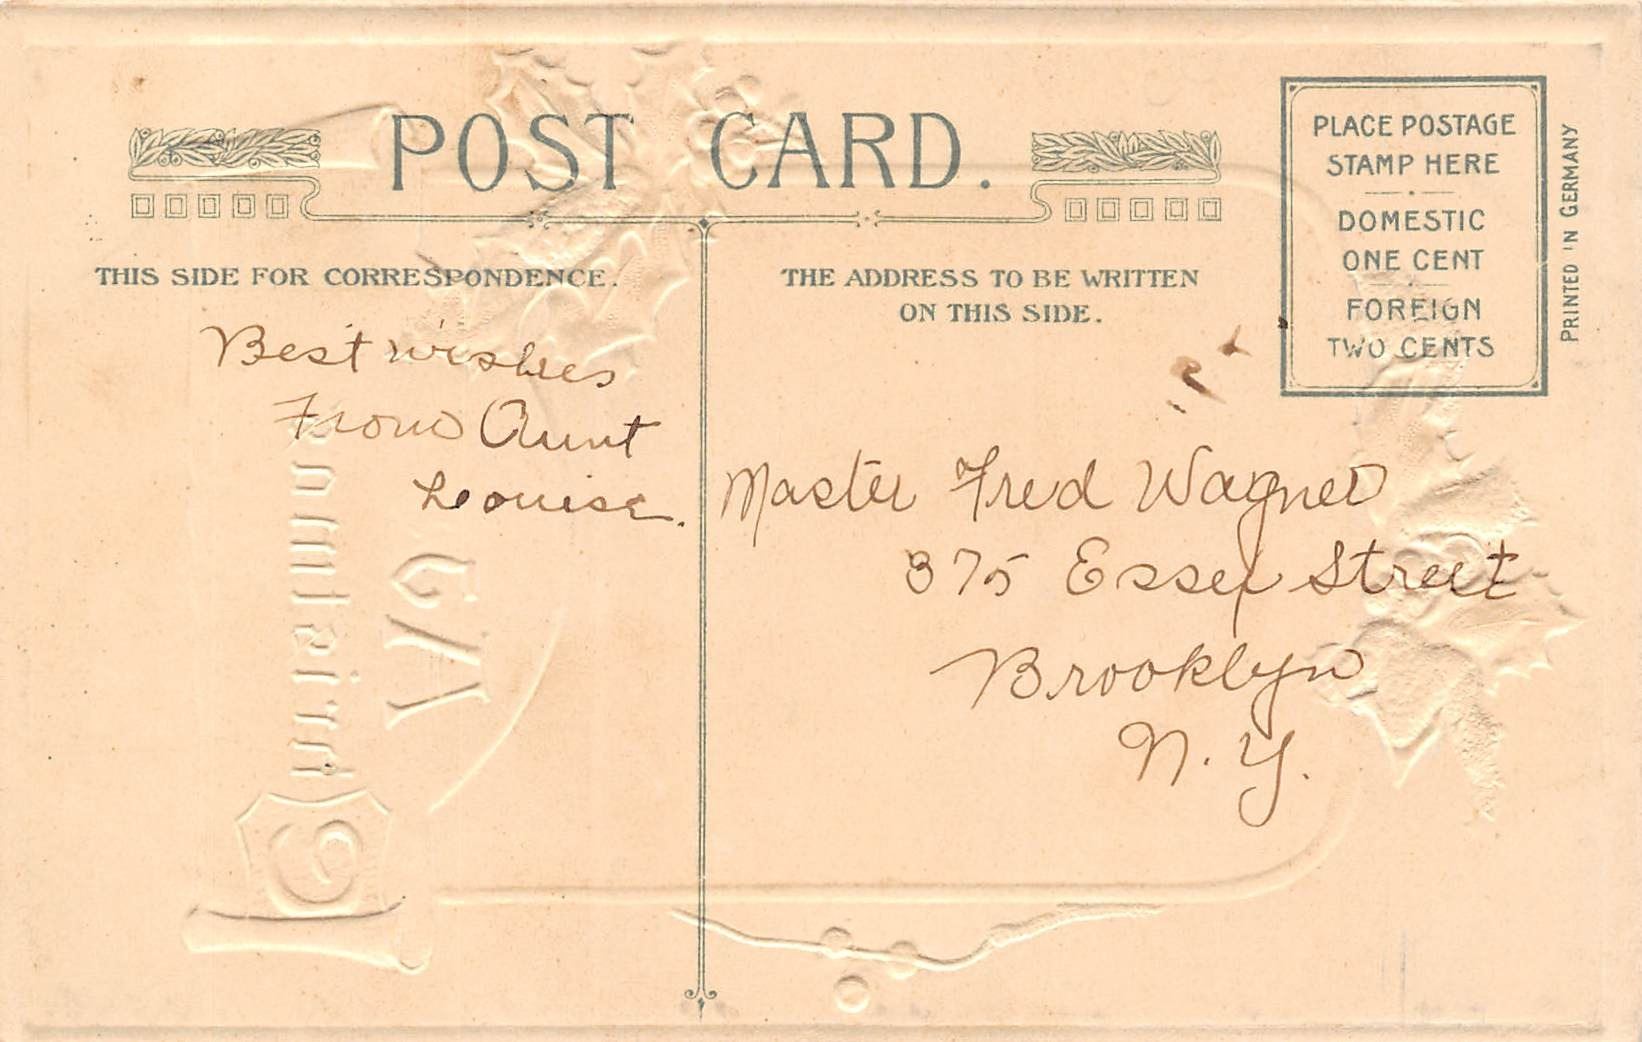 POST CARD.
PLACE POSTAGE
STAMP HERE
DOMESTIC
ONE CENT
FOREIGN
TWO CENTS
PRINTED IN GERMANY
THIS SIDE FOR CORRESPONDENCE.
THE ADDRESS TO BE WRITTEN
ON THIS SIDE.
Best wishes
From Aunt
Louise.
Master Fred Wagner
375 Essex Street
Brooklyn
N. Y.